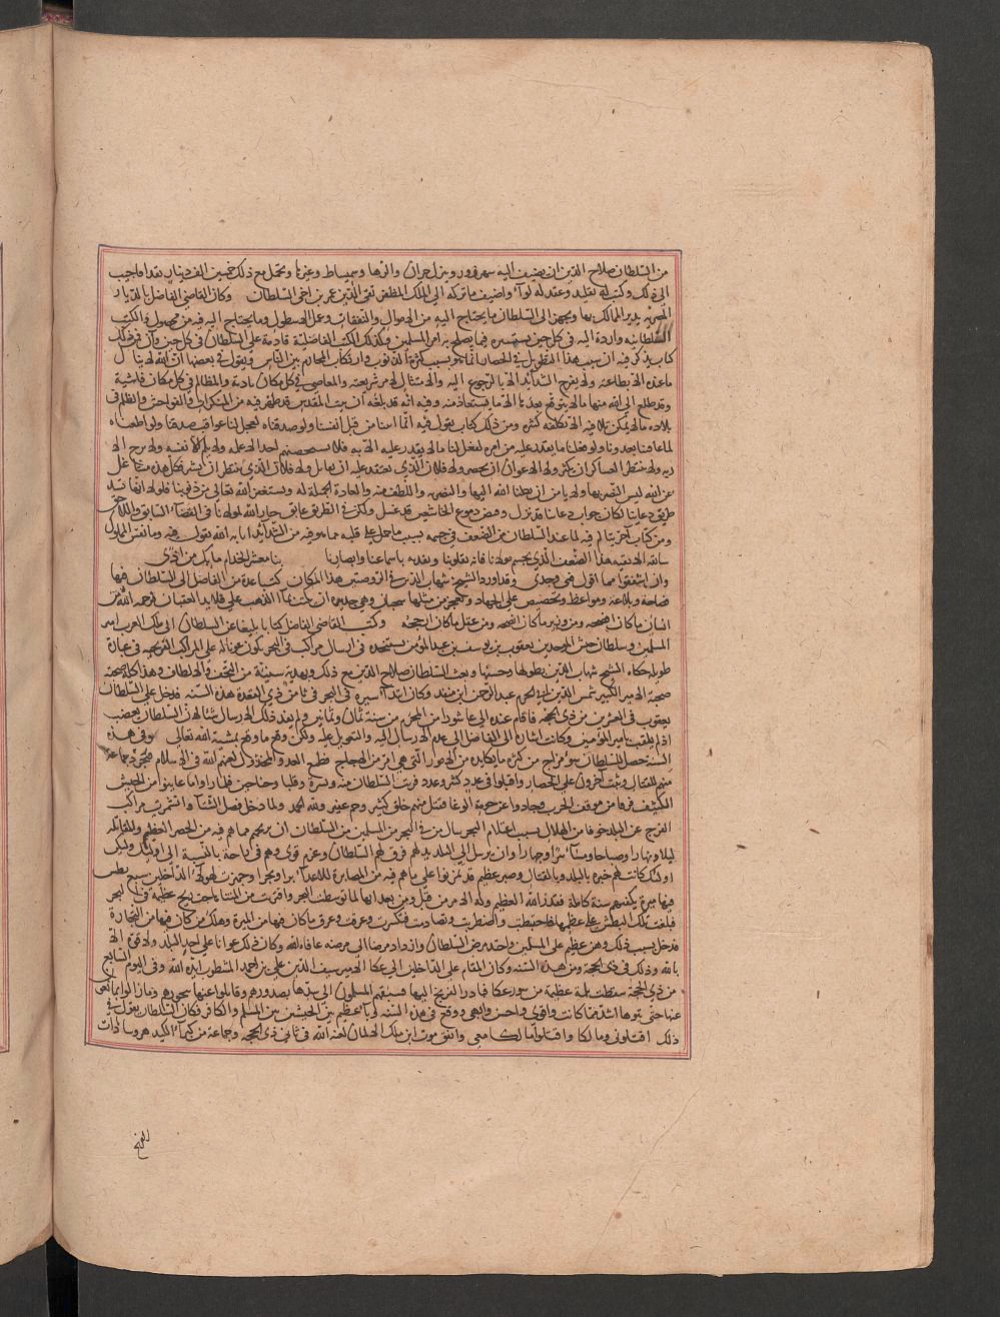 من السلطان صلاح الدين ان يضيف اليه سهرورد وينزل حران والرها وسميساط وغيرها وتحمل مع ذلك خمسين الف دينار نقدا فاجيب
الى ذلك وكتب له تقليد وعقد له لواء واضيف ما تركه الى الملك المظفر تقى الدين عمر بن اخى السلطان وكان القاضى الفاضل بالديار
المصرية يدير الممالك بها ويجهز الى السلطان ما يحتاج اليه من الاموال والنفقات وعمل الاسطول وما يحتاج اليه فيه من محصول والكتب
السلطانية واردة اليه فى كل حين يستشيره فيما يصلح به امر المسلمين وكذلك الكتب الفاضلية قادمة على السلطان فى كل حين وان فى ذلك
كتاب يذكر فيه ان سبب هذا التطويل فى الحصار انما هو بسبب كثرة الذنوب وارتكاب المحارم بين الناس ويقول فى بعضها ان الله لا ينال
ما عنده الا بطاعته ولا يفرج الشدايد الا بالرجوع اليه والامتثال لامر شريعته والمعاصى فى كل مكان بادية والمظالم فى كل مكان فاشية
وقد طلع الى الله منها ما لا يتوقع بعدها الا ما يستعاذ منه وفيه انه قد بلغه ان بيت المقدس قد ظهر فيه من المنكرات والفواحش والظلم فى
بلاده ما لا يمكن تلافيه الا بكلفة كثيرة ومن ذلك كتاب يقول فيه انما اتينا من قبل انفسنا ولو صدقناه لعجل لنا عواقب صدقنا ولو اطعناه
لما عاقبنا بعدونا ولو فعلنا ما نقدر عليه من امره لفعل لنا ما لا نقدر عليه الا به فلا يستخصمن احد الا عمله ولا يلم الا نفسه ولا يرج الا
ربه ولا ينتظر العساكر ان تكثر ولا الاعوان ان تحضر ولا فلان الذى نعتقد عليه ان يقاتل ولا فلان الذى ينتظر ان يسير فكل هذه مشاغل
عن الله ليس النصر بها ولا نامن ان يكلنا الله اليها والنصر به واللطف منه والعادة الجميلة له ونستغفر الله تعالى من ذنوبنا فلولا انها تسد
طريق دعائنا لكان جواب دعائنا قد نزل وفيض دموع الخاشعين قد غسل ولكن فى الطريق عايق خار الله لمولانا فى القضاء السابق واللاحق
ومن كتاب آخر يتالم فيه لما عند السلطان من الضعف فى جسمه بسبب ما حمل على قلبه مما هو فيه من الشدايد اثابه الله يقول فيه وما فى نفس المملوك
شائبة الا بقية هذا الضعف الذى بجسم مولانا فانه بقلوبنا ونفديه باسماعنا وابصارنا بنا معشر الخدام ما بك من اذى
وان اشفقوا مما اقول فبى وحدى وقد اورد الشيخ شهاب الدين فى الروضتين هذا المكان كتبا عدة من الفاضل الى السلطان فيها
فصاحة وبلاغة ومواعظ وتحضيض على الجهاد ويعجز عن مثلها سحبان وهى جديرة ان تكتب بماء الذهب على قلايد العقيان فرحمه الله من
انسان ما كان افصحه ومن وزير ما كان انصحه ومن عقل ما كان ارجحه وكتب القاضى الفاضل كتابا بليغا عن السلطان الى ملك الغرب امير
المسلمين وسلطان جيش الموحدين يعقوب بن يوسف بن عبد المؤمن يستنجده فى ارسال مراكب فى البحر تكون عونا له على المراكب الفرنجية فى عبارة
طويلة حكاه الشيخ شهاب الدين بطولها وحسنها وبعث السلطان صلاح الدين مع ذلك وبهدية سنية من التحف والالطاف وهذا كله صحبة
صحبة الامير الكبير شمس الدين ابى الحزم عبد الرحمن ابن منقذ وكان ابتداء سيره فى البحر فى ثامن ذى القعدة هذه السنة فدخل على السلطان
يعقوب فى العشرين من ذى الحجة فاقام عنده الى عاشوراء من المحرم من سنة ثمان وثمانين ولم يفد ذلك الارسال شيئا لان السلطان يغضب
اذ لم يلقب بامير المؤمنين وكانت اشارة الى الفاضل الى عدم الارسال اليه والتعويل عليه ولكن وقع ما وقع بمشية الله تعالى وفى هذه
السنة حصل للسلطان سوء مزاج من كثرة ما يكابده من الامور التى هى امر من الاجاج فطمع العدو المخذول لعنهم الله فى الاسلام فتجرد جماعة
منهم للقتال وثبت آخرون على الحصار واقبلوا فى عدد كثير وعدد فرتب السلطان ميمنة وميسرة وقلبا وجناحين فلما راوا ما عاينوا من الجيش
الكثيف فروا من موقف الحرب وحادوا عن حومة الوغا فقتل منهم خلق كثير وجم غفير ولله الحمد ولما دخل فصل الشتاء وانشمرت مراكب
الفرنج عن البلد خوفا من الهلاك بسبب اغتلام البحر سال من فى البحر من المسلمين من السلطان ان يريحهم مما هم فيه من الحصر العظيم والمقاتلة
ليلا ونهارا وصباحا ومساء سرا وجهارا وان يرسل الى البلد بدلهم فرق لهم السلطان وعزم قوى وهم فى راحة بالنسبة الى اولئك ولكن
اولئك كانت لهم خبرة بالبلد وبالقتال وصبر عظيم قد تمرنوا على ما هم فيه من المصابرة للاعداء برا وبحرا وجهزت لهولاء الداخلين سبع بطس
فيها ميرة تكفيهم سنة كاملة فقدر الله العظيم وله الامر من قبل ومن بعد انها لما توسطت البحر واقتربت من المينا هاجت ريح عظيمة فى البحر
فلبقت تلك البطس على عظمها فاختبطت واضطربت وتصادمت فتكسرت وغرقت وغرق ما كان فيها من الميرة وهلك من كان فيها من البحارة
فدخل بسبب ذلك وهن عظيم على المسلمين واحتد مرض السلطان وازداد مرضا الى مرضه عافاه الله وكان ذلك عونا على اخذ البلد ولا قوة الا
بالله وذلك فى ذى الحجة من هذه السنة وكان المقدم على الداخلين الى عكا الامير سيف الدين على بن احمد المشطوب ايده الله وفى اليوم السابع
من ذى الحجة سقطت ثلمة عظيمة من سور عكا فبادر الفرنج اليها فسبقهم المسلمون الى سدها بصدورهم وقاتلوا عنها بنحورهم وما زالوا يمانعون
عنها حتى بنوها اشد مما كانت واقوى واحسن وابهى ووقع فى هذه السنة وباء عظيم بين الجيشين من المسلم والكافر فكان السلطان يقول فى
ذلك اقتلونى ومالكا واقتلوا مالكا معى واتفق موت ابن ملك الالمان لعنه الله فى ثانى ذى الحجة وجماعة من كبراء الكندهرية وسادات
الفرنج